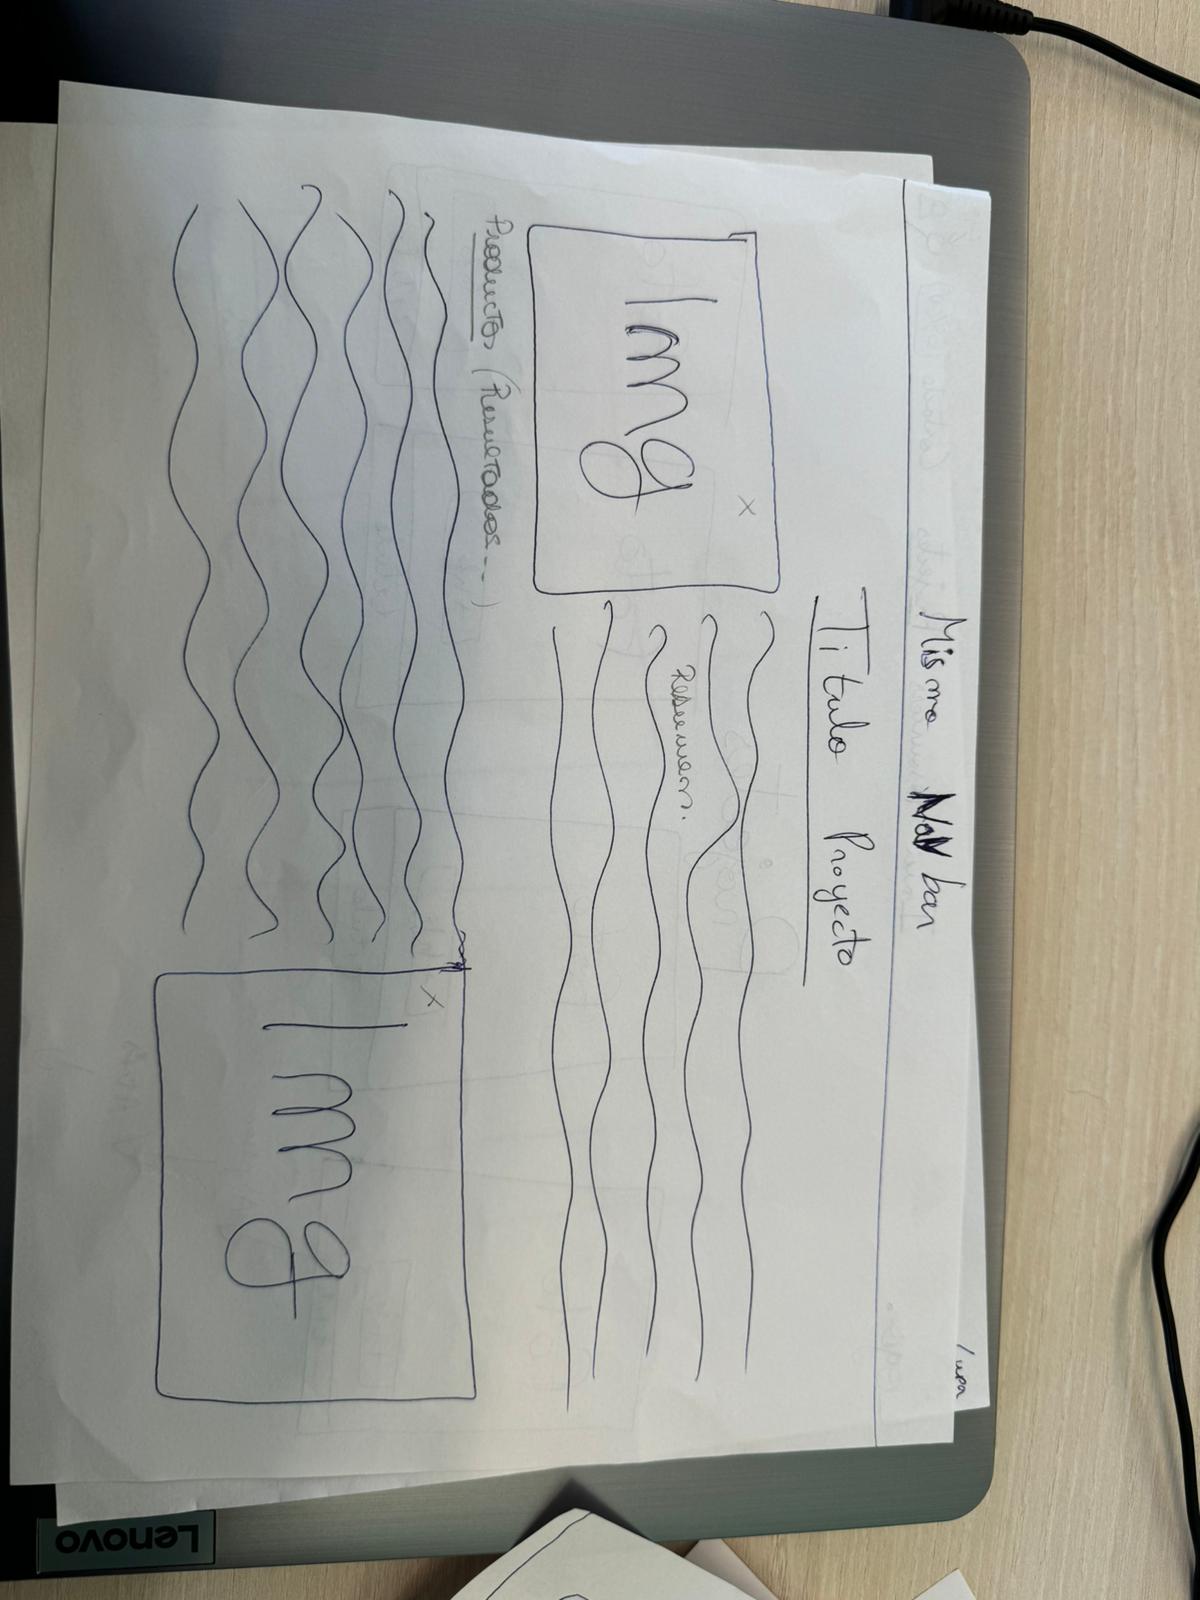 Mismo NaV bar
/ upa
Titulo Proyecto
x
Img
Resumen.
Productos (Resultados...)
x
Img
Lenovo